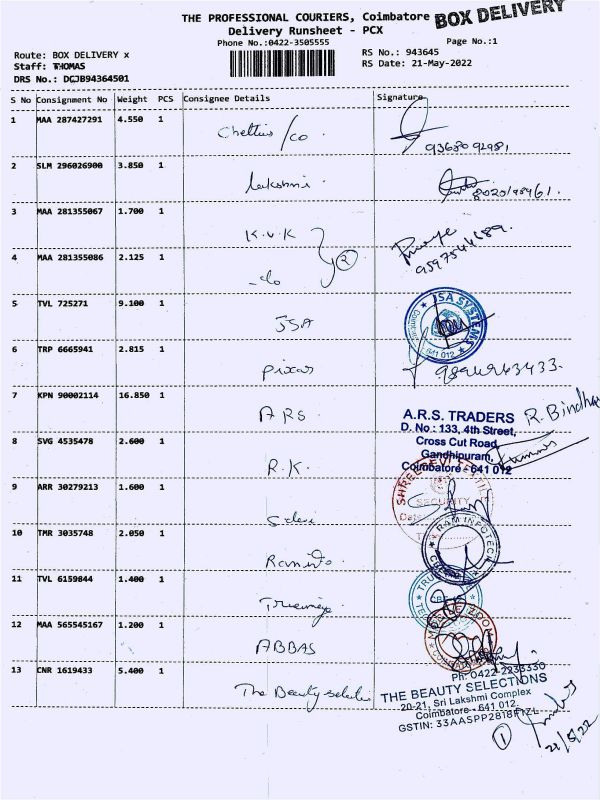 THE PROFESSIONAL COURIERS, Coimbatore
BOX DELIVERY
Delivery Runsheet - PCX
Phone No.:0422-3505555
Page No.:1
Route: BOX DELIVERY x
RS No.: 943645
Staff: THOMAS
RS Date: 21-May-2022
DRS No.: DCJB94364501
S No Consignment No Weight PCS Consignee Details Signature
1 MAA 287427291 4.550 1 Chettius/co
2 SLM 296026900 3.850 1 Lakshmi.
3 MAA 281355067 1.700 1 K.V.K
9597544689.
4 MAA 281355086 2.125 1 -do 2
5 TVL 725271 9.100 1 JSA
JSA SYSTEMS
641 012
6 TRP 6665941 2.815 1 pixas
7 KPN 90002114 16.850 1 ARS
A.R.S. TRADERS R. Bindha
D. No : 133, 4th Street,
Cross Cut Road,
Gandhipuram,
Coimbatore - 641 012
8 SVG 4535478 2.600 1 R.K.
9 ARR 30279213 1.600 1
SECURITY
10 TMR 3035748 2.050 1
RAM INFOTECH
11 TVL 6159844 1.400 1
12 MAA 565545167 1.200 1 ABBAS
13 CNR 1619433 5.400 1 The Beauty selecti
Ph: 0422-2233330
THE BEAUTY SELECTIONS
20-21, Sri Lakshmi Complex
Coimbatore - 641 012.
GSTIN: 33AASPP2818F1ZL
1
21/5/22